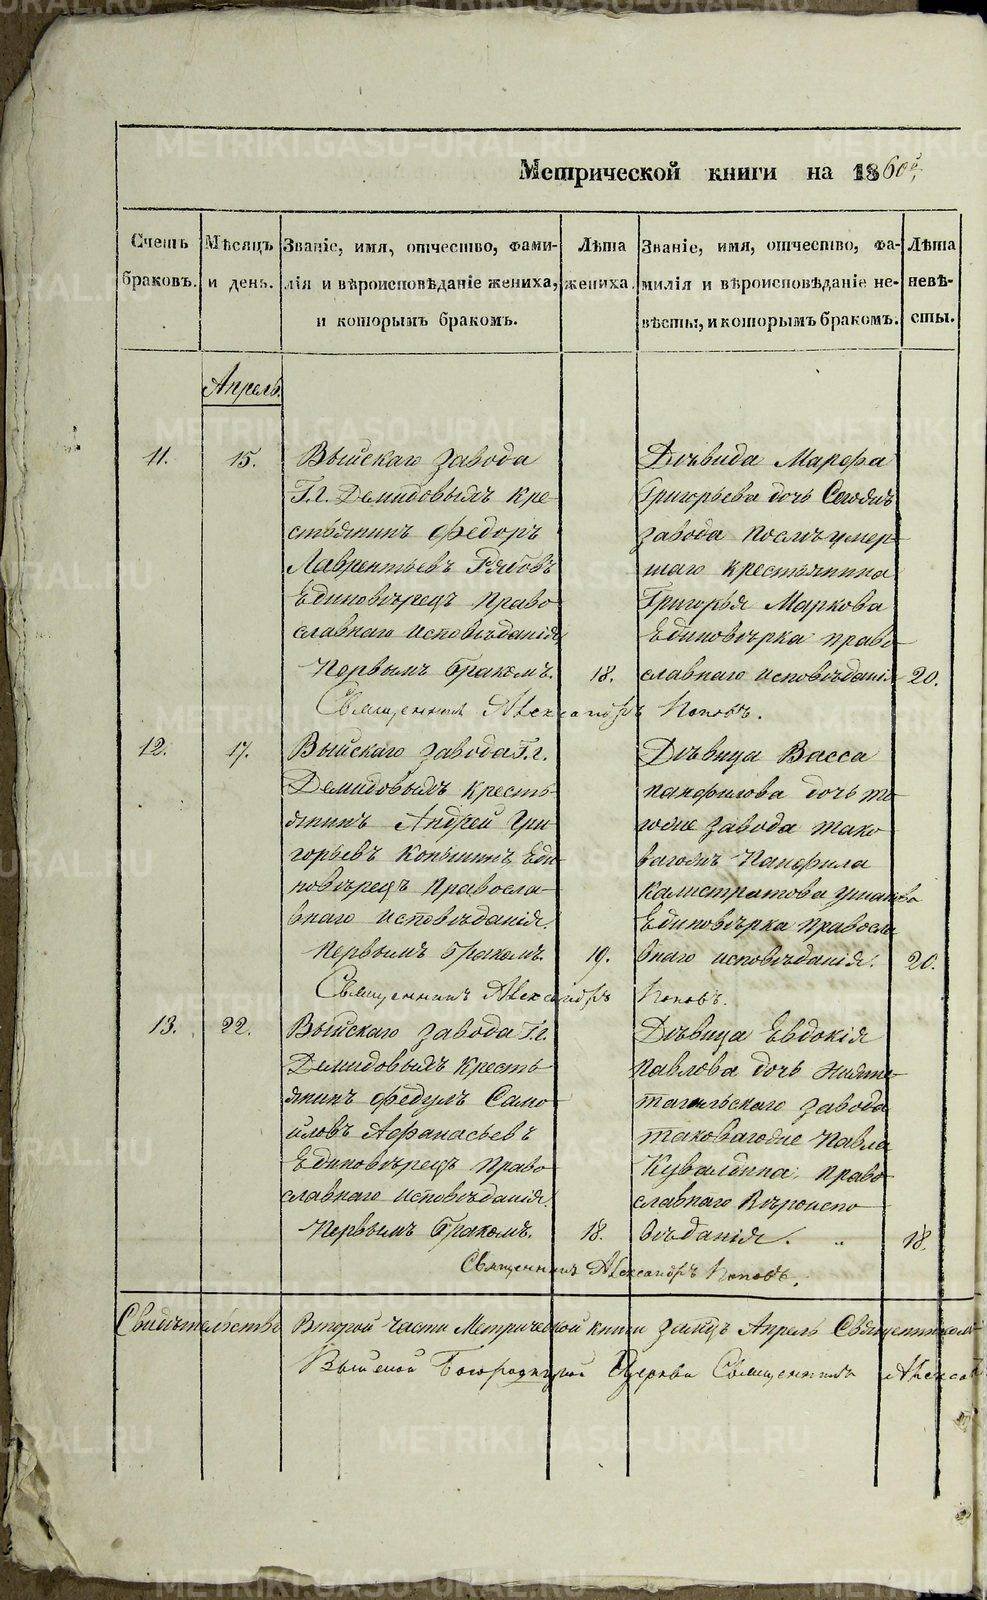 Метрической книги на 1860й,
Счетъ браковъ.
Мѣсяцъ и день.
Званіе, имя, отчество, фами-
лія и вѣроисповѣданіе жениха,
и которымъ бракомъ.
Лѣта жениха.
Званіе, имя, отчество, фа-
милія и вѣроисповѣданіе не-
вѣсты, и которымъ бракомъ.
Лѣта невѣ-
сты.
Апрель.
11.
15.
Выйскаго завода
Г.г. Демидовыхъ кре-
стьянинъ Федоръ
Лаврентьевъ Рябовъ
Единовѣрецъ право-
славнаго исповѣданія,
Первымъ бракомъ.
18.
Дѣвица Марфа
Григорьева дочь
завода послѣ умер-
шаго крестьянина
Григорья Маркова
Единовѣрка право-
славнаго исповѣданія
20.
Священникъ Александръ Поповъ.
12.
17.
Выйскаго завода Г.г.
Демидовыхъ кресть-
янинъ Андрей Гри-
горьевъ Копысинъ Еди-
новѣрецъ правосла-
внаго исповѣданія.
Первымъ бракомъ.
19.
Дѣвица Васса
Панфилова дочь то-
гоже завода тако-
вагожъ Панфила
Калистратова Ушакова
Единовѣрка правосла-
внаго исповѣданія.
20.
Священникъ Александръ Поповъ.
13.
22.
Выйскаго завода Г.г.
Демидовыхъ кресть-
янинъ Федулъ Само-
йловъ Афанасьевъ
Единовѣрецъ право-
славнаго исповѣданія.
Первымъ бракомъ.
18.
Дѣвица Евдокія
Павлова дочь Нижне-
тагильскаго завода
таковагоже Павла
Кувалдина, право-
славнаго вѣроиспо-
вѣданія. "
18.
Священникъ Александръ Поповъ.
Свидѣтельство Второй части Метрической книги за мцъ Апрель Священникомъ
Выйской Богородицкой Церкви Священникъ Алекса
METRIKI.GASO-URAL.RU